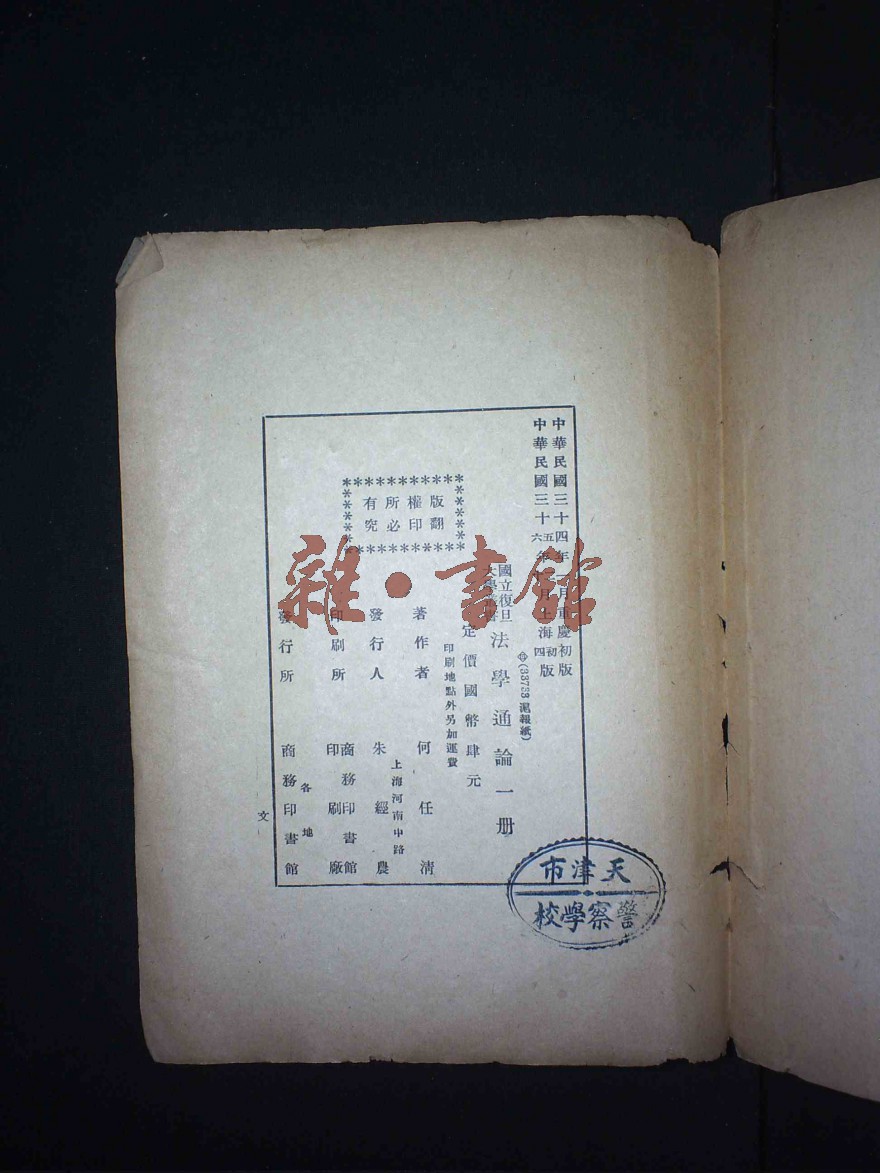 中華民國三十四年 月重慶初版
中華民國三十五六年 月上海初四版
◎(33733 滬報紙)
國立復旦
大學 書
法學通論一册
定價國幣肆元
印刷地點外另加運費
版權所有
翻印必究
著作者 何任清
上海河南中路
發行人 朱經農
印刷所 商務印書館印刷廠
發行所 各地商務印書館
文
天津市
警察學校
雜·書館